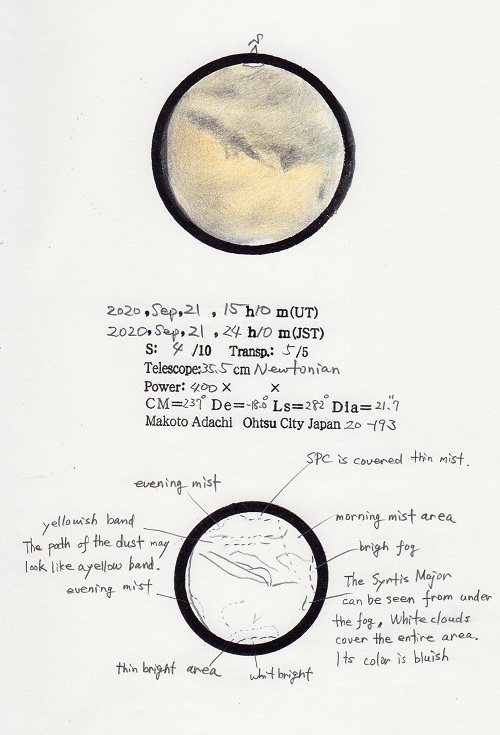 S
2020, Sep, 21 , 15 h 10 m(UT)
2020, Sep, 21 , 24 h 10 m(JST)
S: 4 /10 Transp.: 5/5
Telescope:35.5 cm Newtonian
Power: 400 × ×
CM=237° De=-18.0° Ls=282° Dia=21."7
Makoto Adachi Ohtsu City Japan 20-193
SPC is covered thin mist.
evening mist
yellowish band
The path of the dust may
look like a yellow band.
evening mist
morning mist area
brigh fog
The Syrtis Major
can be seen from under
the fog, White clouds
cover the entire area.
Its color is bluish
thin bright area
whit bright